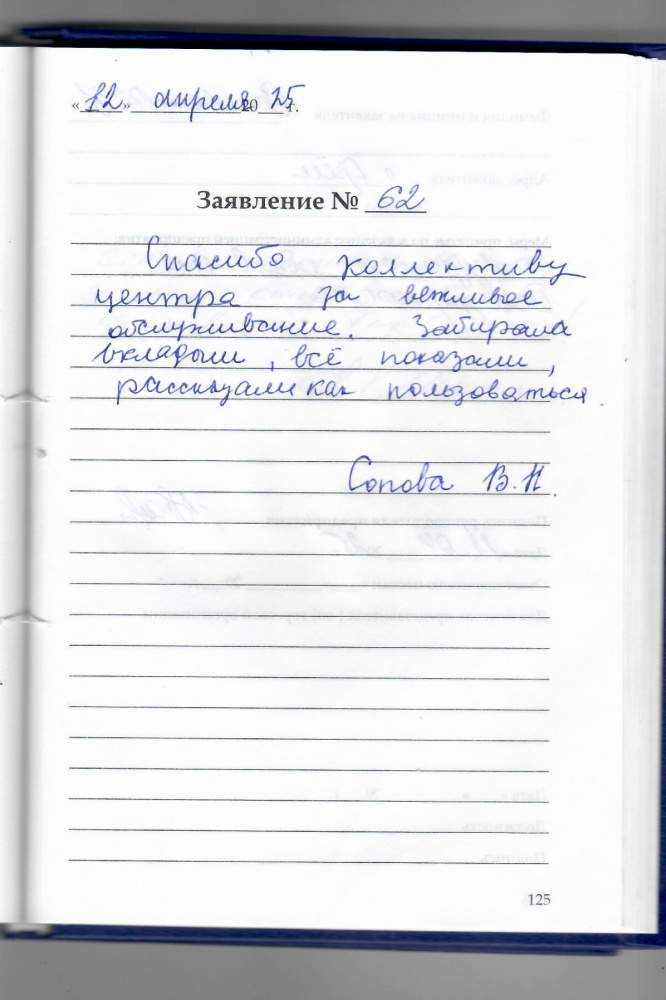 «12» апреля 2025 г.
Заявление № 62
Спасибо коллективу
центра за вежливое
обслуживание. Забирала
вкладыши, всё показали,
рассказали как пользоваться
Сопова В.Н.
125